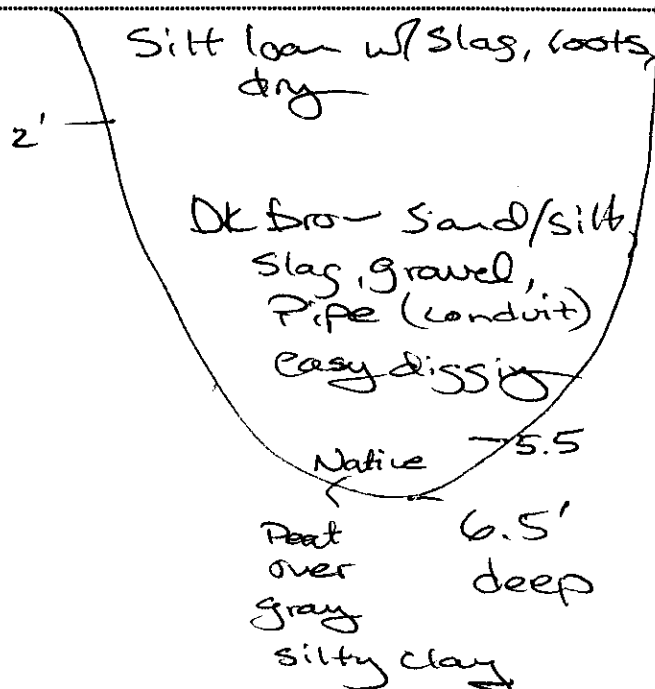 Silt loam w/ Slag, roots,
dry
2'
Dk brow Sand/silt,
Slag, gravel,
Pipe (conduit)
easy diggig
5.5
Native
6.5'
deep
Peat
over
gray
silty clay